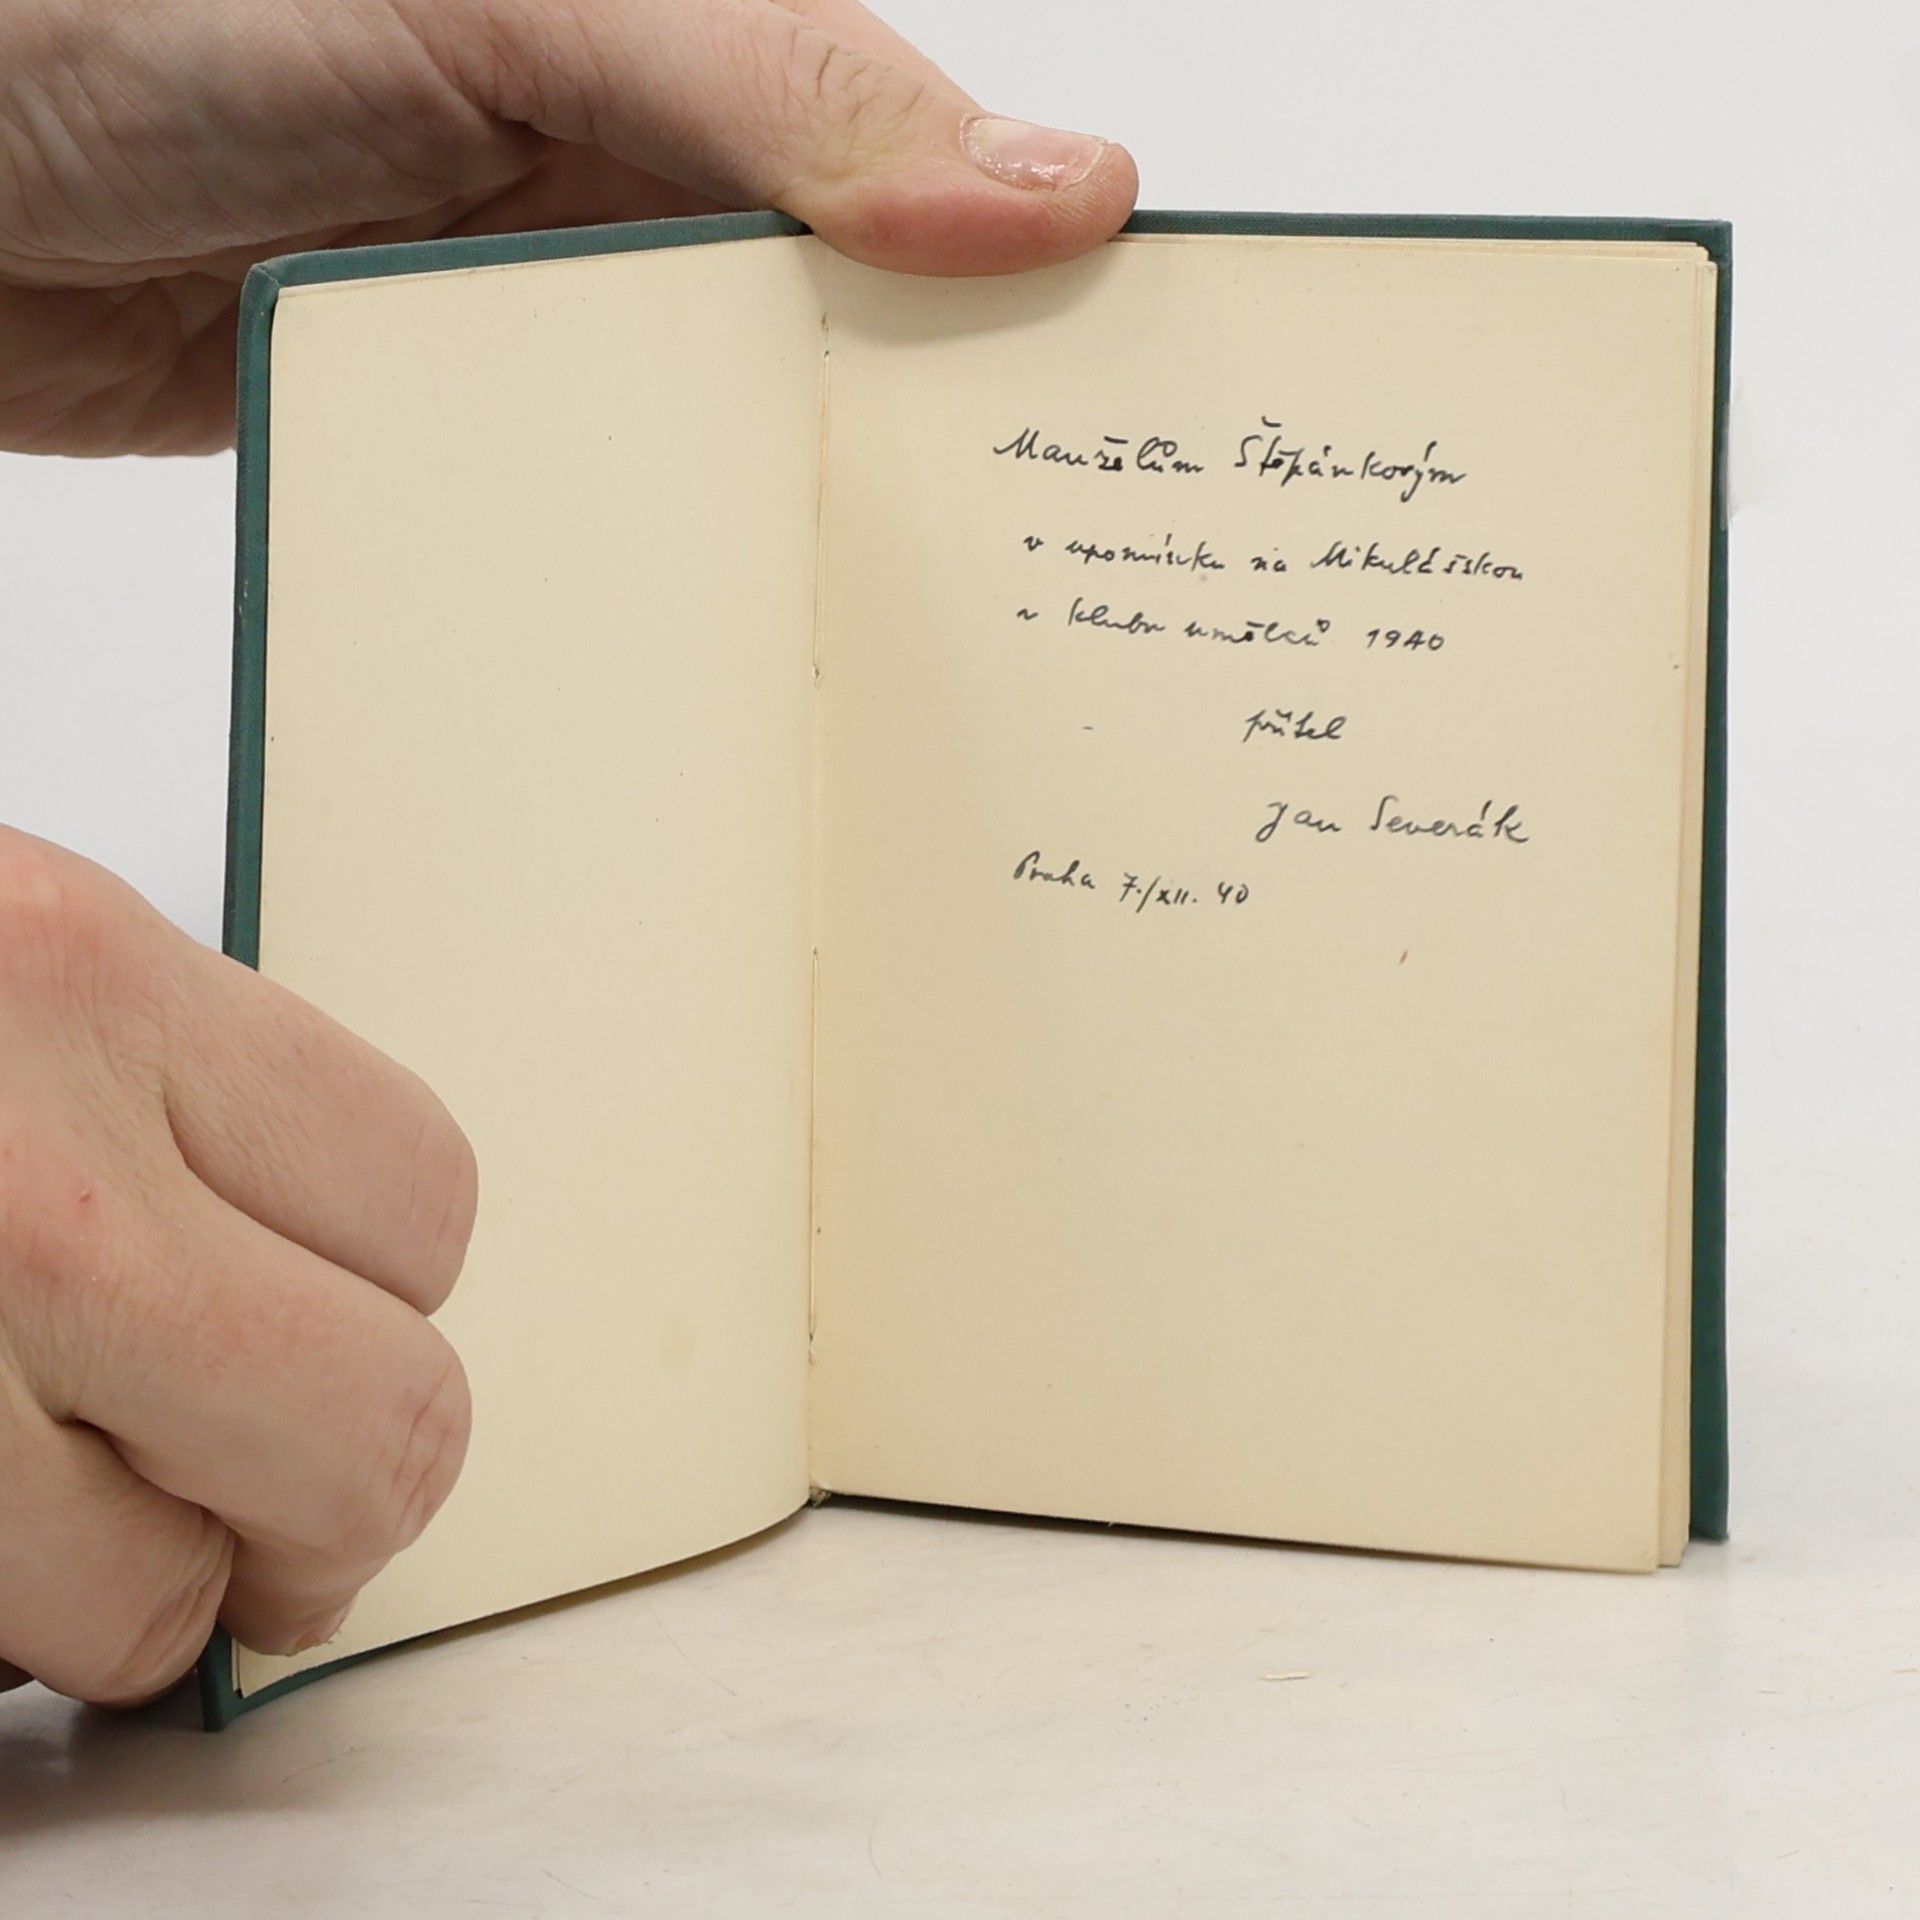 Manželům Štěpánkovým
v upomínku na Mikulášskou
v klubu umělců 1940
přítel
Jan Severák
Praha 7./XII. 40